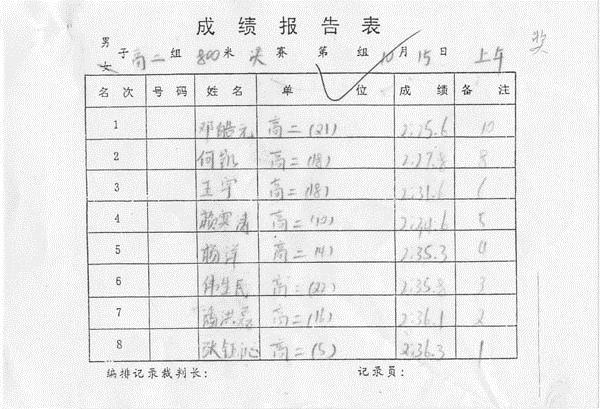 成绩报告表
奖
男
女 子高二组 800米 决赛 第 组 10月15日 上午
名次 号码 姓名 单位 成绩 备注
1 邓皓元 高二(21) 2:25.6 10
2 何凯 高二(18) 2:27.8 8
3 王宇 高二(18) 2:31.6 6
4 高二(10) 2:34.6 5
5 杨洋 高二(4) 2:35.3 4
6 高二(22) 2:35.8 3
7 高二(16) 2:36.1 2
8 高二(5) 2:36.3 1
编排记录裁判长： 记录员：